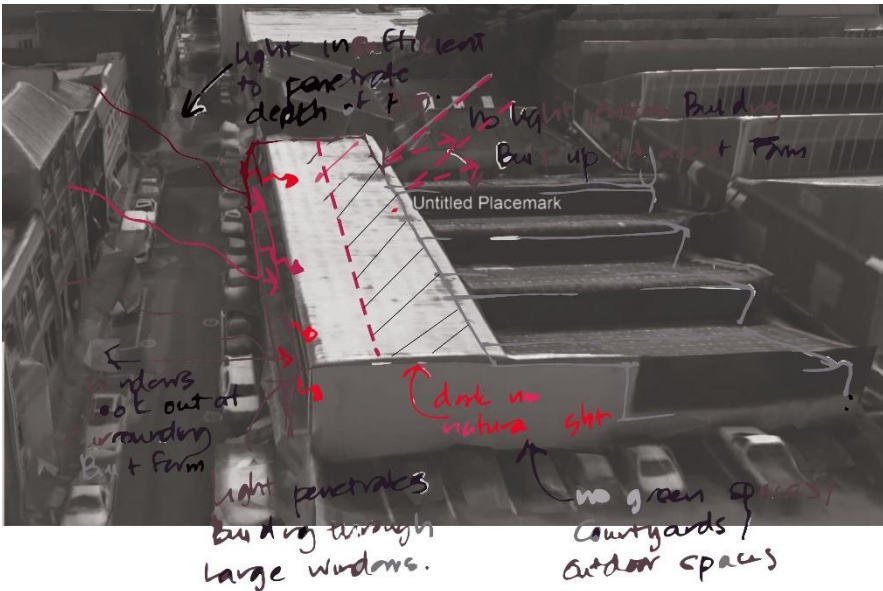 light insufficient
to penetrate
depth of
no light enters Building
Built up adjacent Form
Untitled Placemark
windows
look out at
surrounding
Built form
dark no
natural light
light penetrates
Building through
large windows.
no green spaces/
Courtyards /
Outdoor spaces